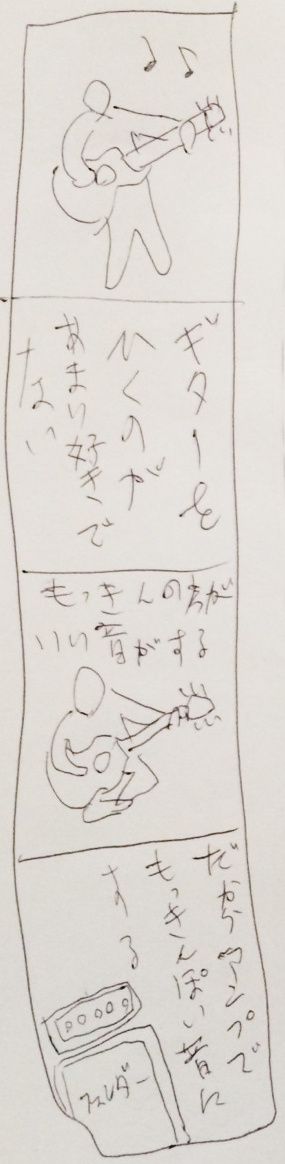 ギターを
ひくのが
あまり好きで
ない
もっきんの方が
いい音がする
だからアンプで
もっきんぽい音に
する
フェンダー